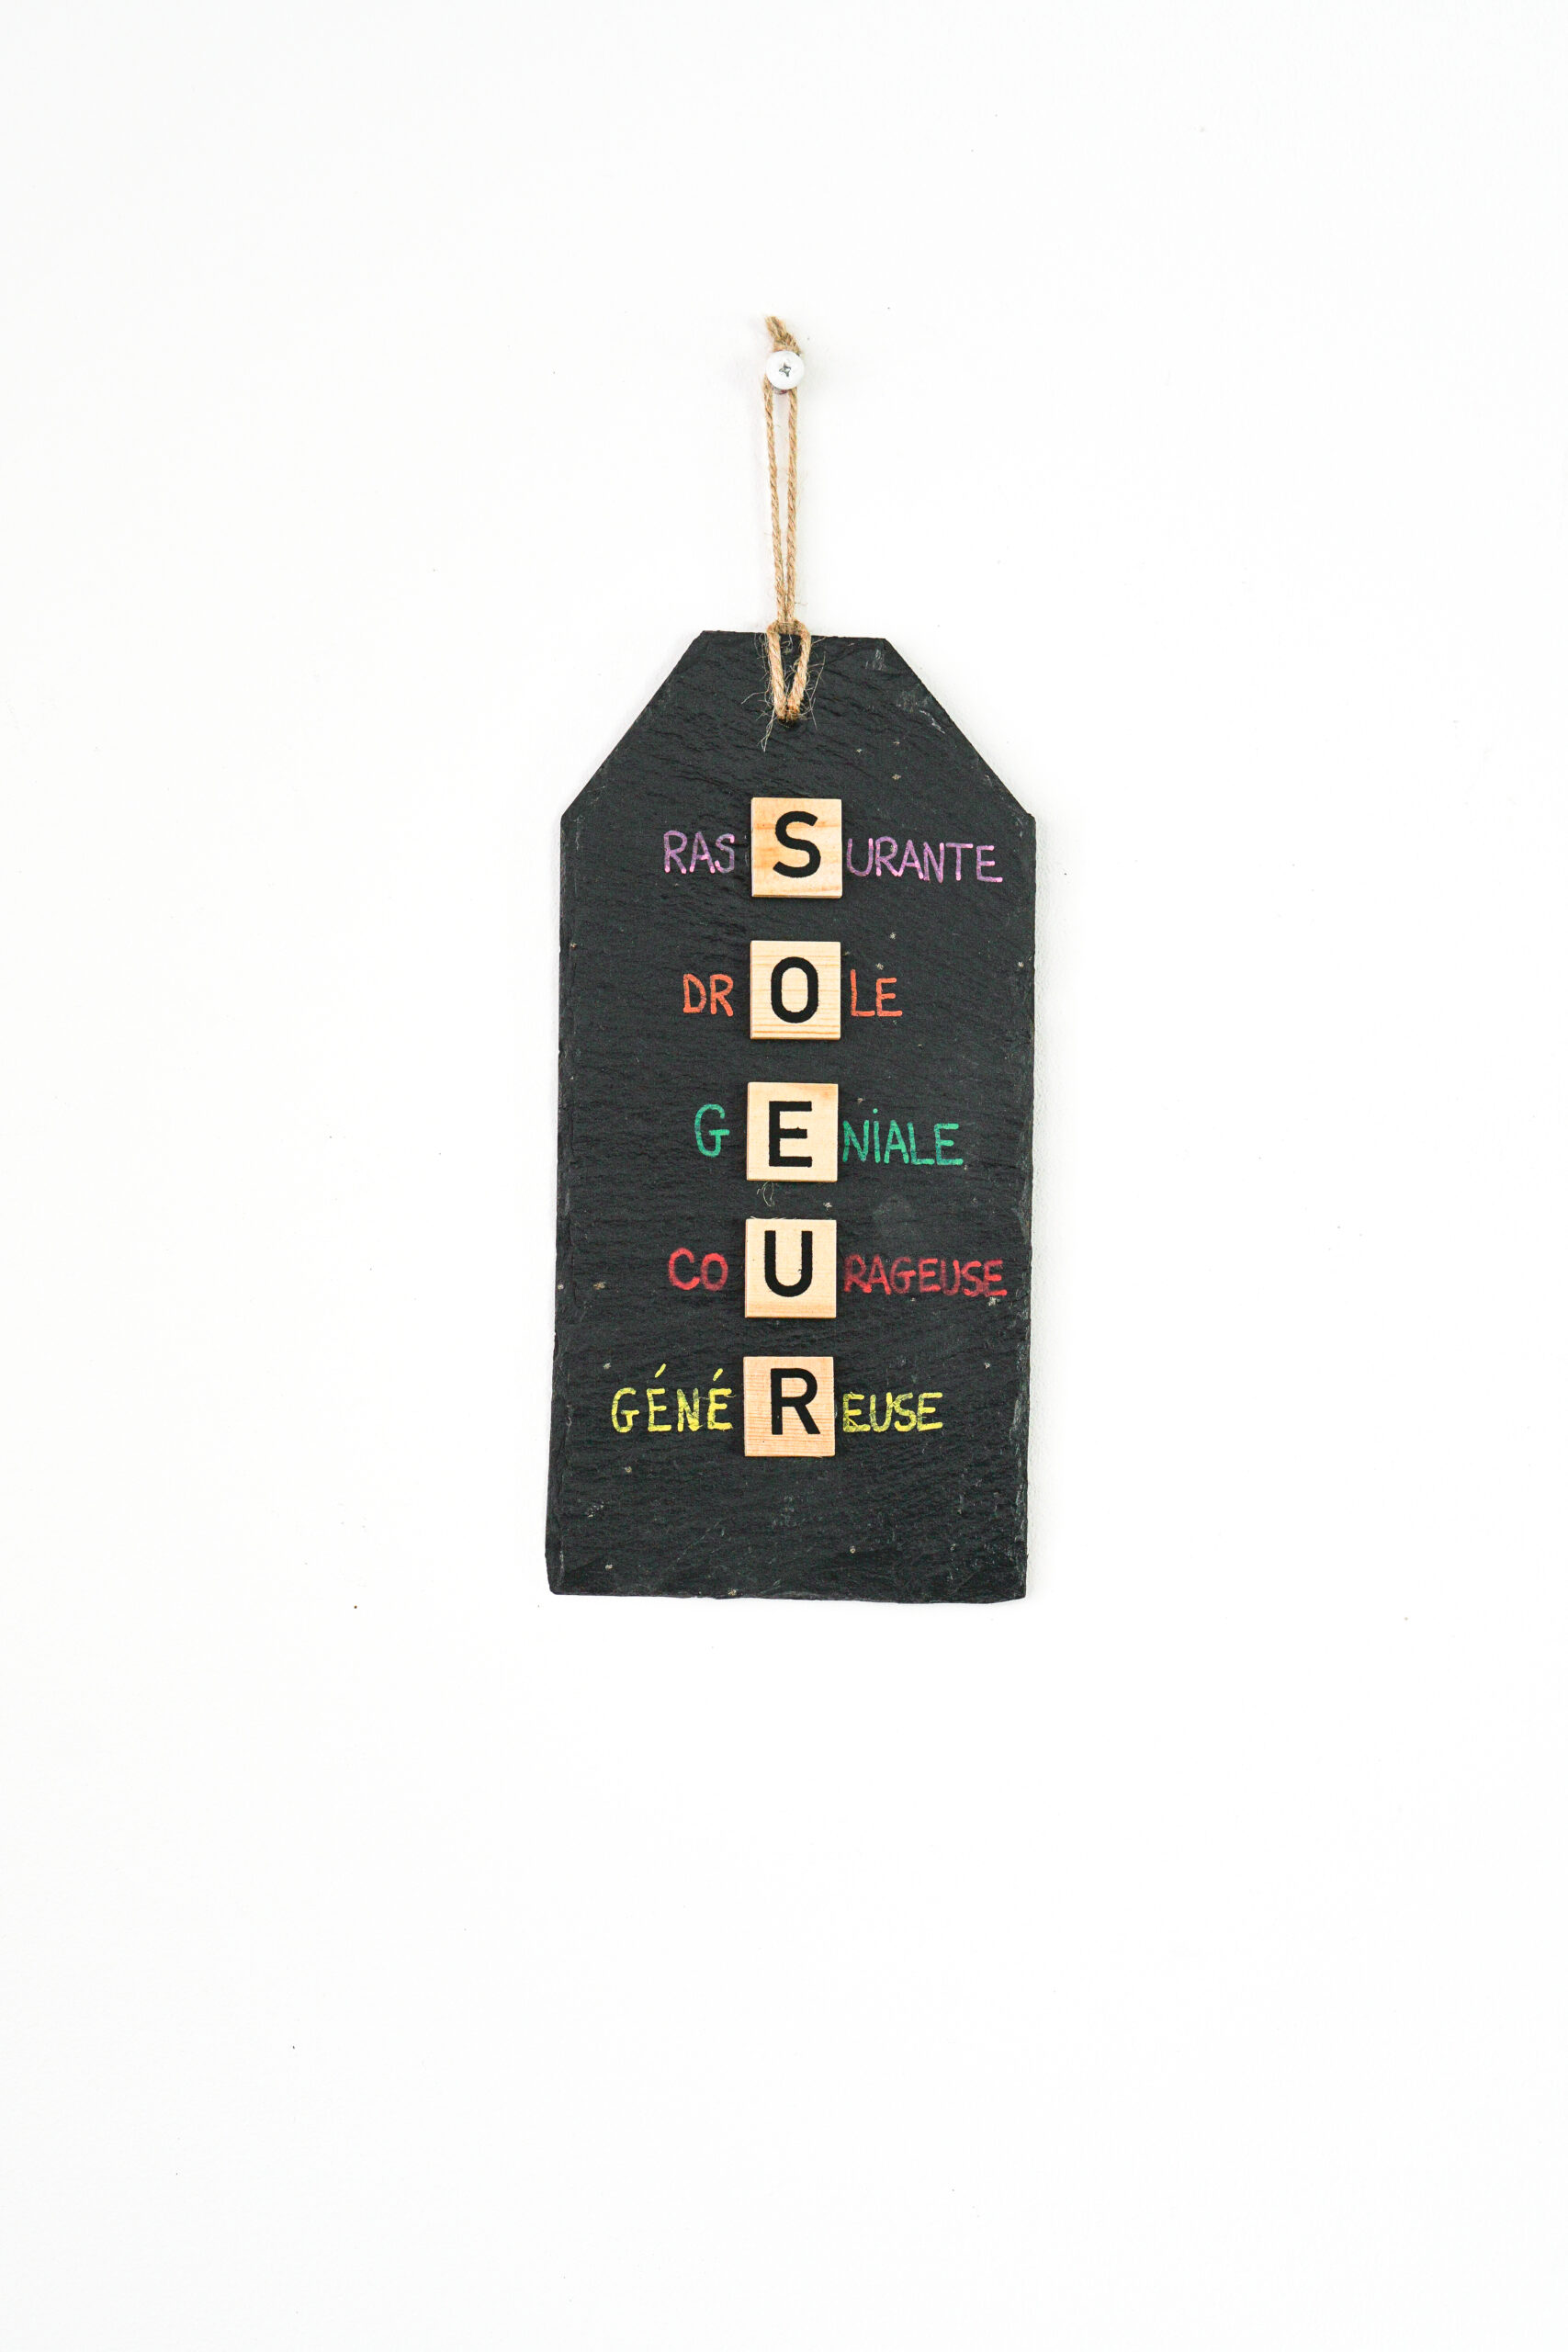 RASSURANTE
DROLE
GENiALE
COURAGEUSE
GÉNÉREUSE